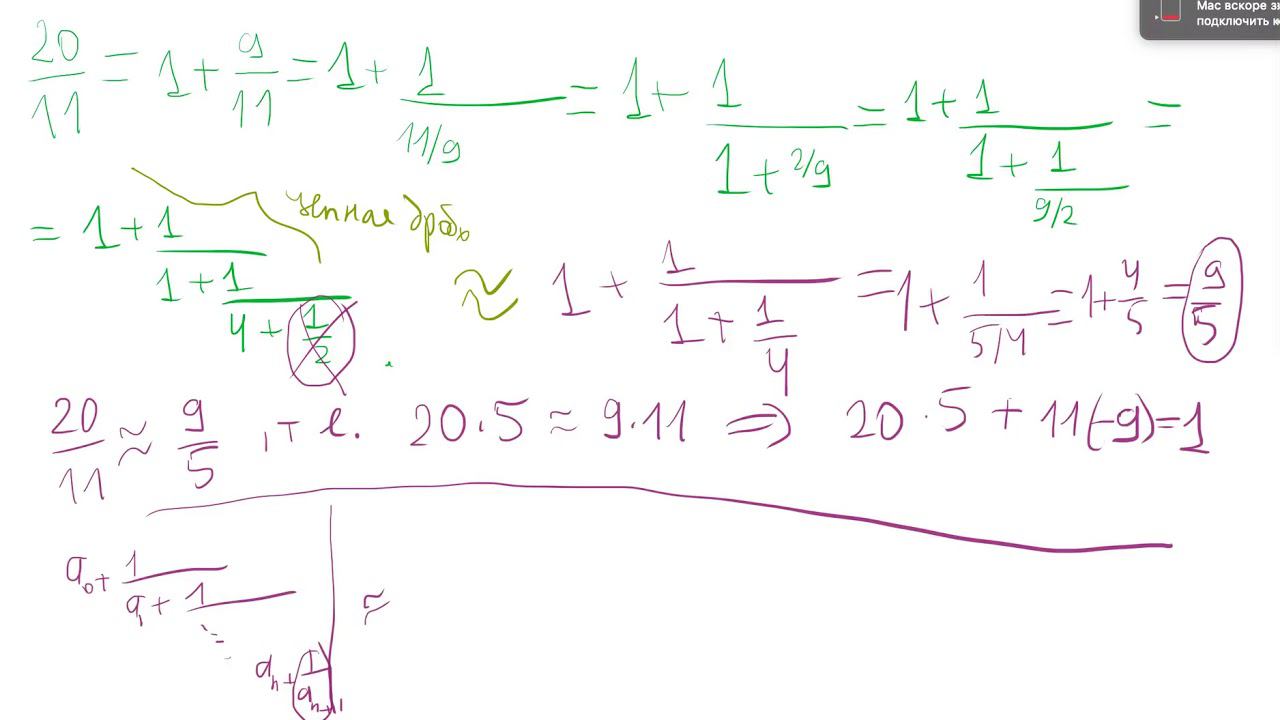 Mac вскоре
подключить
20/11 = 1 + 9/11 = 1 + 1/(11/9) = 1 + 1/(1 + 2/9) = 1 + 1/(1 + 1/(9/2)) =
цепная дробь
= 1 + 1/(1 + 1/(4 + 1/2)) ≈ 1 + 1/(1 + 1/4) = 1 + 1/(5/4) = 1 + 4/5 = 9/5
20/11 ≈ 9/5 , т е. 20·5 ≈ 9·11 ⇒ 20·5 + 11(-9)=1
a₀ + 1/(a₁ + 1/(⋱ aₙ + 1/aₙ₊₁)) ≈